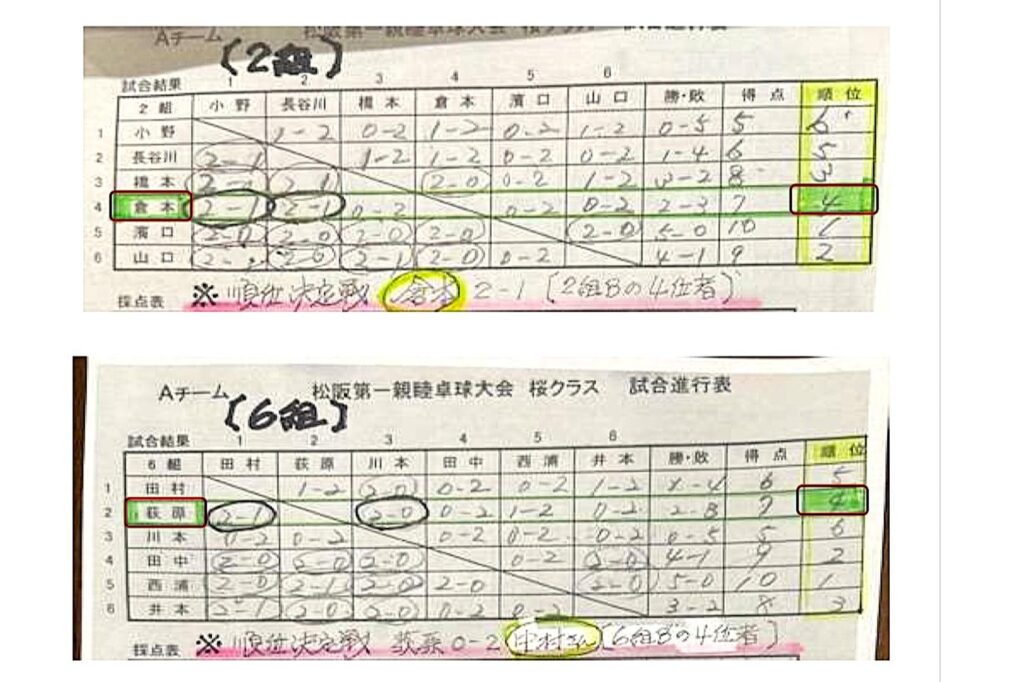 Aチーム 松阪第一親睦卓球大会 桜クラス 試合進行表
【2組】
試合結果 1 2 3 4 5 6
2組 小野 長谷川 橋本 倉本 濱口 山口 勝・敗 得点 順位
1 小野 1-2 0-2 1-2 0-2 1-2 0-5 5 6
2 長谷川 2-1 1-2 1-2 0-2 0-2 1-4 6 5
3 橋本 2-1 2-1 2-0 0-2 1-2 3-2 8 3
4 倉本 2-1 2-1 0-2 0-2 0-2 2-3 7 4
5 濱口 2-0 2-0 2-0 2-0 2-0 5-0 10 1
6 山口 2-0 2-1 2-0 0-2 4-1 9 2
採点表 ※順位決定戦 倉本 2-1 [2組Bの4位者]
Aチーム 松阪第一親睦卓球大会 桜クラス 試合進行表
【6組】
試合結果 1 2 3 4 5 6
6組 田村 萩原 川本 田中 西浦 井本 勝・敗 得点 順位
1 田村 1-2 2-0 0-2 0-2 1-2 6 5
2 萩原 2-1 2-0 0-2 1-2 0-2 2-3 7 4
3 川本 0-2 0-2 0-2 0-2 0-2 0-5 5 6
4 田中 2-0 2-0 2-0 0-2 2-0 4-1 9 2
5 西浦 2-0 2-1 2-0 2-0 2-0 5-0 10 1
6 井本 2-1 2-0 2-0 0-2 0-2 3-2 8 3
採点表 ※順位決定戦 萩原 0-2 中村さん [6組Bの4位者]